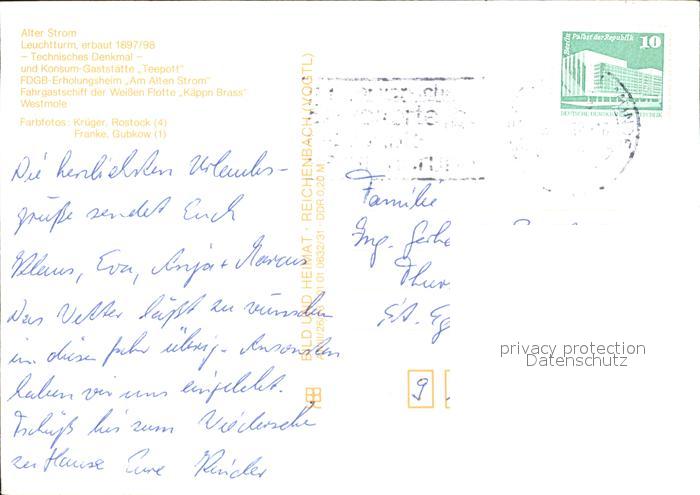 Alter Strom
Leuchtturm, erbaut 1897/98
– Technisches Denkmal –
und Konsum-Gaststätte „Teepott"
FDGB-Erholungsheim „Am Alten Strom"
Fahrgastschiff der Weißen Flotte „Käppn Brass"
Westmole
Farbfotos: Krüger, Rostock (4)
Franke, Gubkow (1)
Die herzlichsten Urlaubs-
grüße sendet Euch
Klaus, Eva, Anja + Marcus
Das Wetter läßt zu wünschen
in diesem Jahr übrig. Ansonsten
haben wir uns eingelebt.
Tschüß bis zum Wiedersehn
zu Hause Eure Kinder
BILD UND HEIMAT · REICHENBACH (VOGTL)
01 01 0632/31 · DDR 0,20 M
Berlin Palast der Republik 10
DEUTSCHE DEMOKRATISCHE REPUBLIK
Familie
Ing. Gerha
Thur
9
privacy protection
Datenschutz